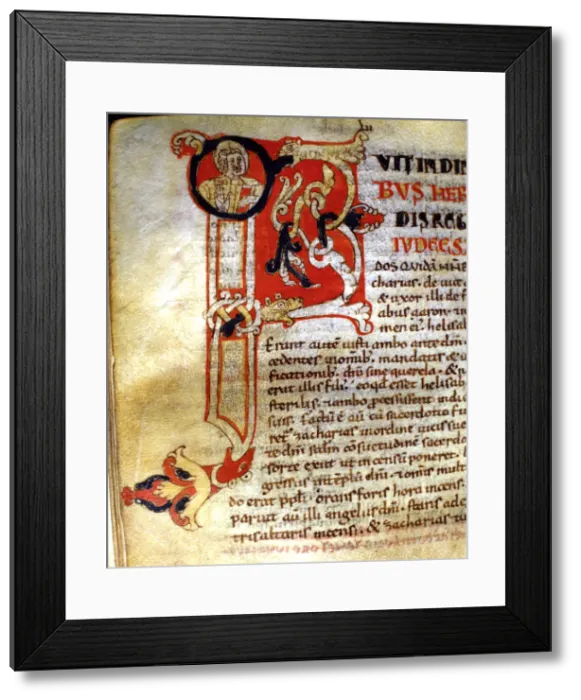 F
VIT IN DIE
BVS HER
DIS REG
IVDEE S
DOS QUIDĀ NM̄E
charias· de uic
& uxor illi de f
abus aaron· &
men ei' helisab
Erant autē iusti ambo ante dm̄
cedentes inomib; mandatis & iu
ficationib; dn̄i sine querela· & n
erat illis fili' eoqd esset helisab
sterilis· &ambo pcessissent indie
suis· factū ē aū cū sacerdotio fu
ret zacharias inordine uicis sue
te dm̄ scdm̄ cōsu&udinē sacerdo
sorte exiit ut incensū poneret·
gressus intēplū dni· &omis mult
do erat ppli orans foris hora incensi·
paruit aū illi angelus dni· stans adex
tris altaris incensi· & zacharias tu